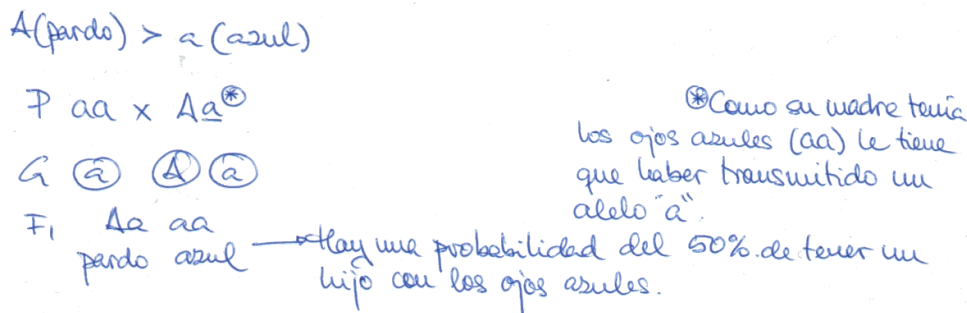 A(pardo) > a (azul)
P aa x Aa*
G a A a
F1 Aa aa
pardo azul → Hay una probabilidad del 50% de tener un
hijo con los ojos azules.
*Como su madre tenía
los ojos azules (aa) le tiene
que haber transmitido un
alelo "a".